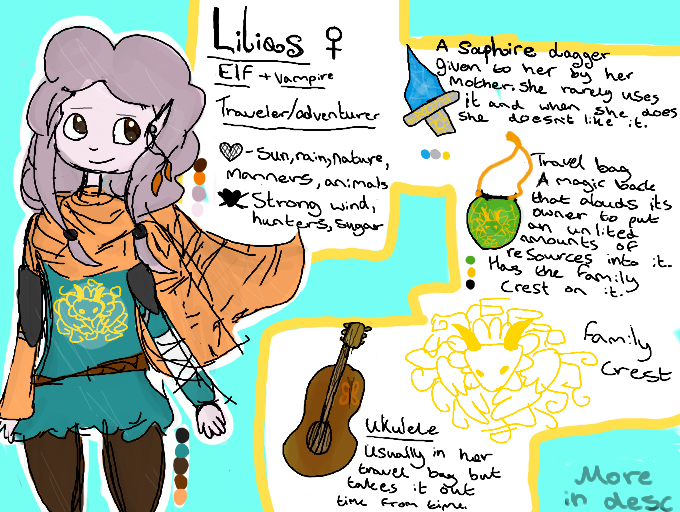 Lilias ♀
Elf + vampire
Traveler/adventurer
♥ - Sun, rain, nature,
manners, animals
Strong wind,
hunters, sugar
A Saphoire dagger
given to her by her
Mother. She rarely uses
it and when she does
she doesnt like it.
Travel bag
A magic back
that alouds its
owner to put
an unlited
amounts of
resources into it.
Has the family
crest on it.
Family
Crest
Ukulele
Usually in her
travel bag but
takes it out
time from time.
More
in desc